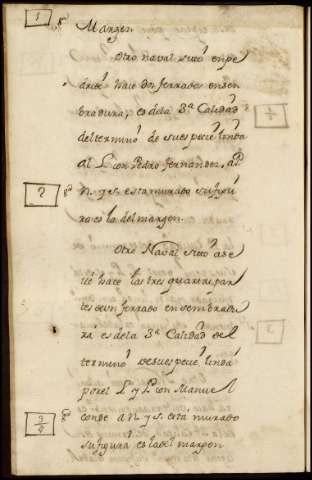 Margen
Otro naval sito en pe
hace dos ferrados en sen
bradura, es de la 3ª Calidad
del termino de su especie linda
Al L. con Pedro fernandez, al
N. y S. esta murado su figu
ra es la del margen.
Otro Naval sito a se
hace las tres quartas par
tes de un ferrado en sembradu
ra es de la 3ª Calidad del
termino de su especie linda
por el L. y P. con Manuel
conde al N. y S. esta murado
su figura es la del margen
1
2
3/4